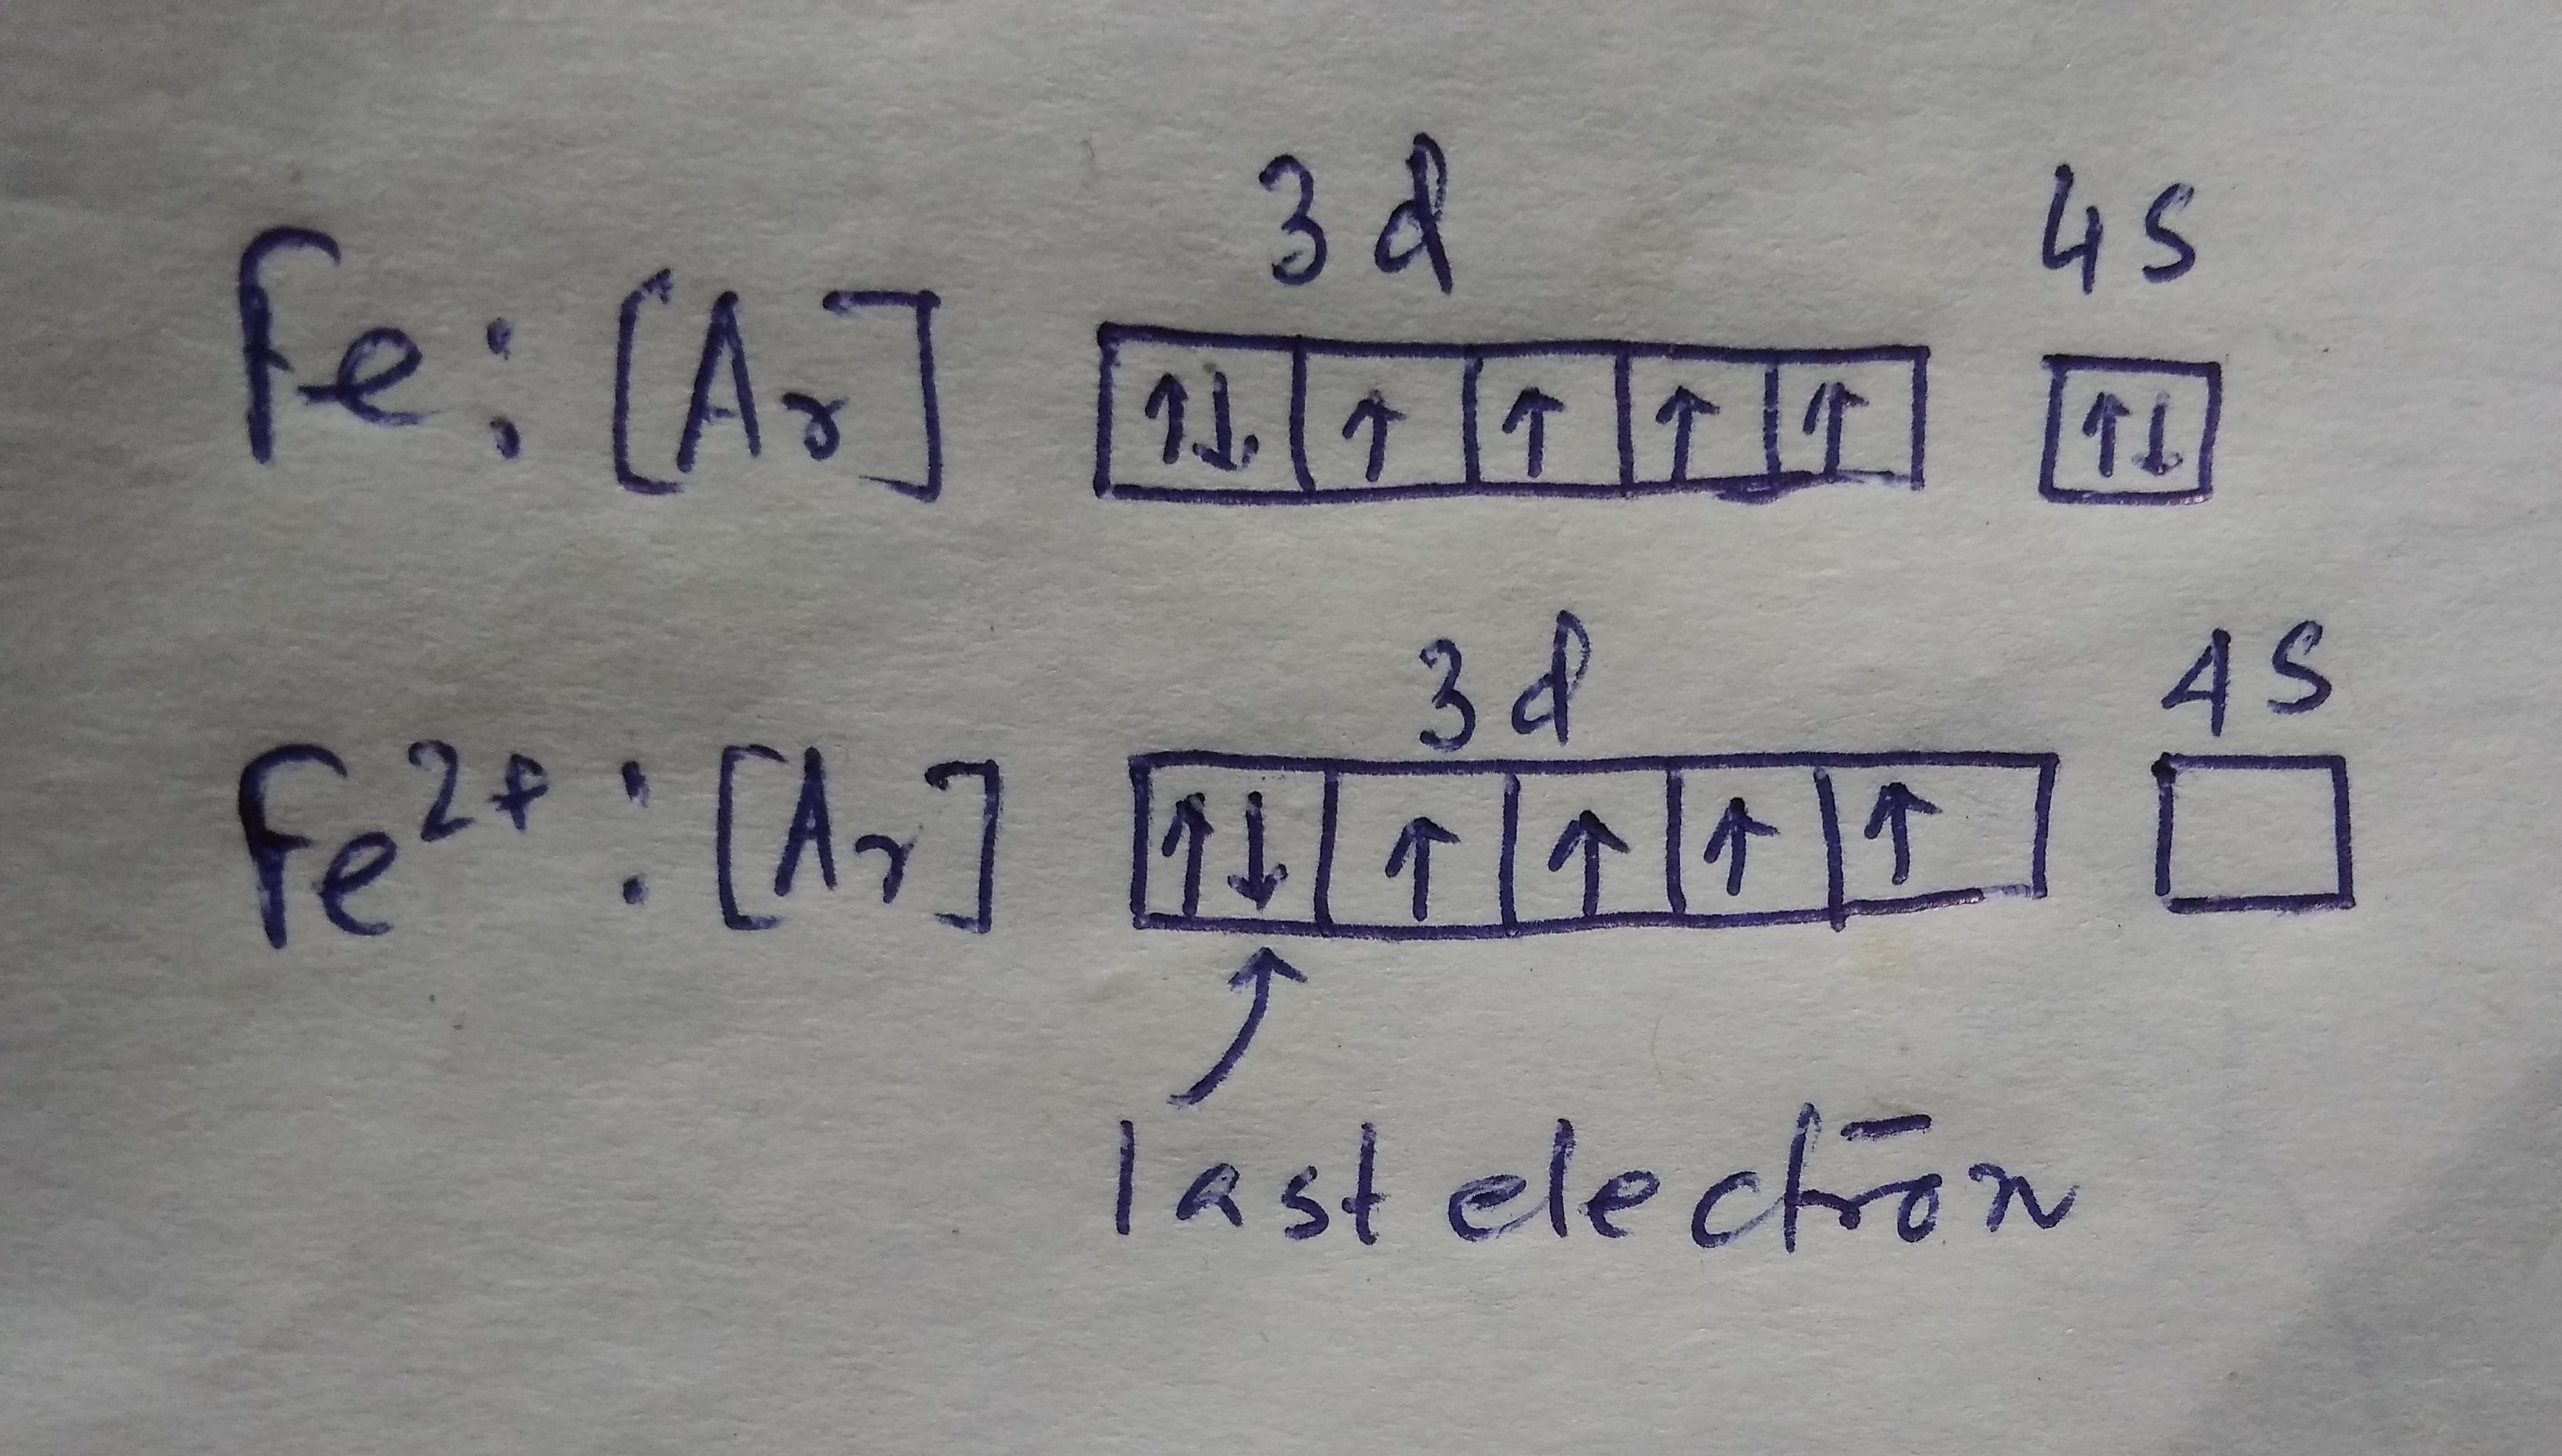 3d 4s
Fe: [Ar] ↑↓ ↑ ↑ ↑ ↑ ↑↓
3d 4s
Fe2+: [Ar] ↑↓ ↑ ↑ ↑ ↑
last electron